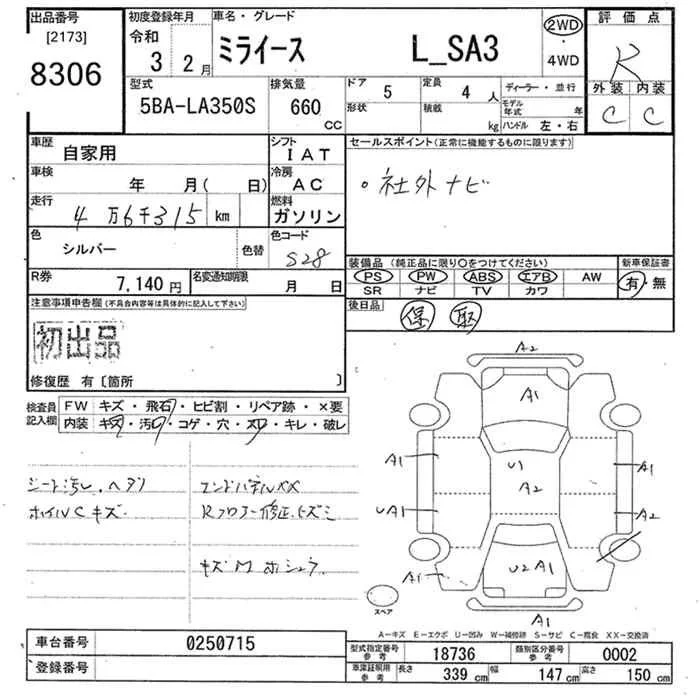 出品番号
[2173]
8306
初度登録年月
令和
3 2月
車名・グレード
ミライース L_SA3
2WD
・
4WD
評価点
R
外装 内装
C C
型式
5BA-LA350S
排気量
660
CC
ドア 5
形状
定員 4 人
積載 kg
ディーラー・並行
モデル年式 年
ハンドル 左・右
車歴
自家用
シフト
IAT
車検
年 月( 日)
冷房
AC
走行
4万6千315 km
燃料
ガソリン
色
シルバー
色替
色コード
S28
R券
7,140円
名変通知期限
月 日
セールスポイント(正常に機能するものに限ります)
・社外ナビ
装備品 (純正品に限り〇をつけてください)
PS PW ABS エアB AW
SR ナビ TV カワ
新車保証書
有・無
後日品
保 取
注意事項申告欄(不具合内容等は具体的に記入して下さい)
初出品
修復歴 有〔箇所 〕
検査員記入欄
FW キズ・飛石・ヒビ割・リペア跡・×要
内装 キズ・汚レ・コゲ・穴・スレ・キレ・破レ
シート汚レ、ヘタリ
ホイルCキズ
エンドパネルXX
Rフロアー修正、ヒズミ
キズM
A2
A1
A1
U1
A2
A1
UA1
A2
A1
U2 A1
A1
A1
スペア
A−キズ E−エクボ U−凹み W−補修跡 S−サビ C−腐食 XX−交換済
車台番号 0250715
登録番号
型式指定番号 参考 18736
類別区分番号 参考 0002
車庫証明用 参考 長さ 339 cm 幅 147 cm 高さ 150 cm